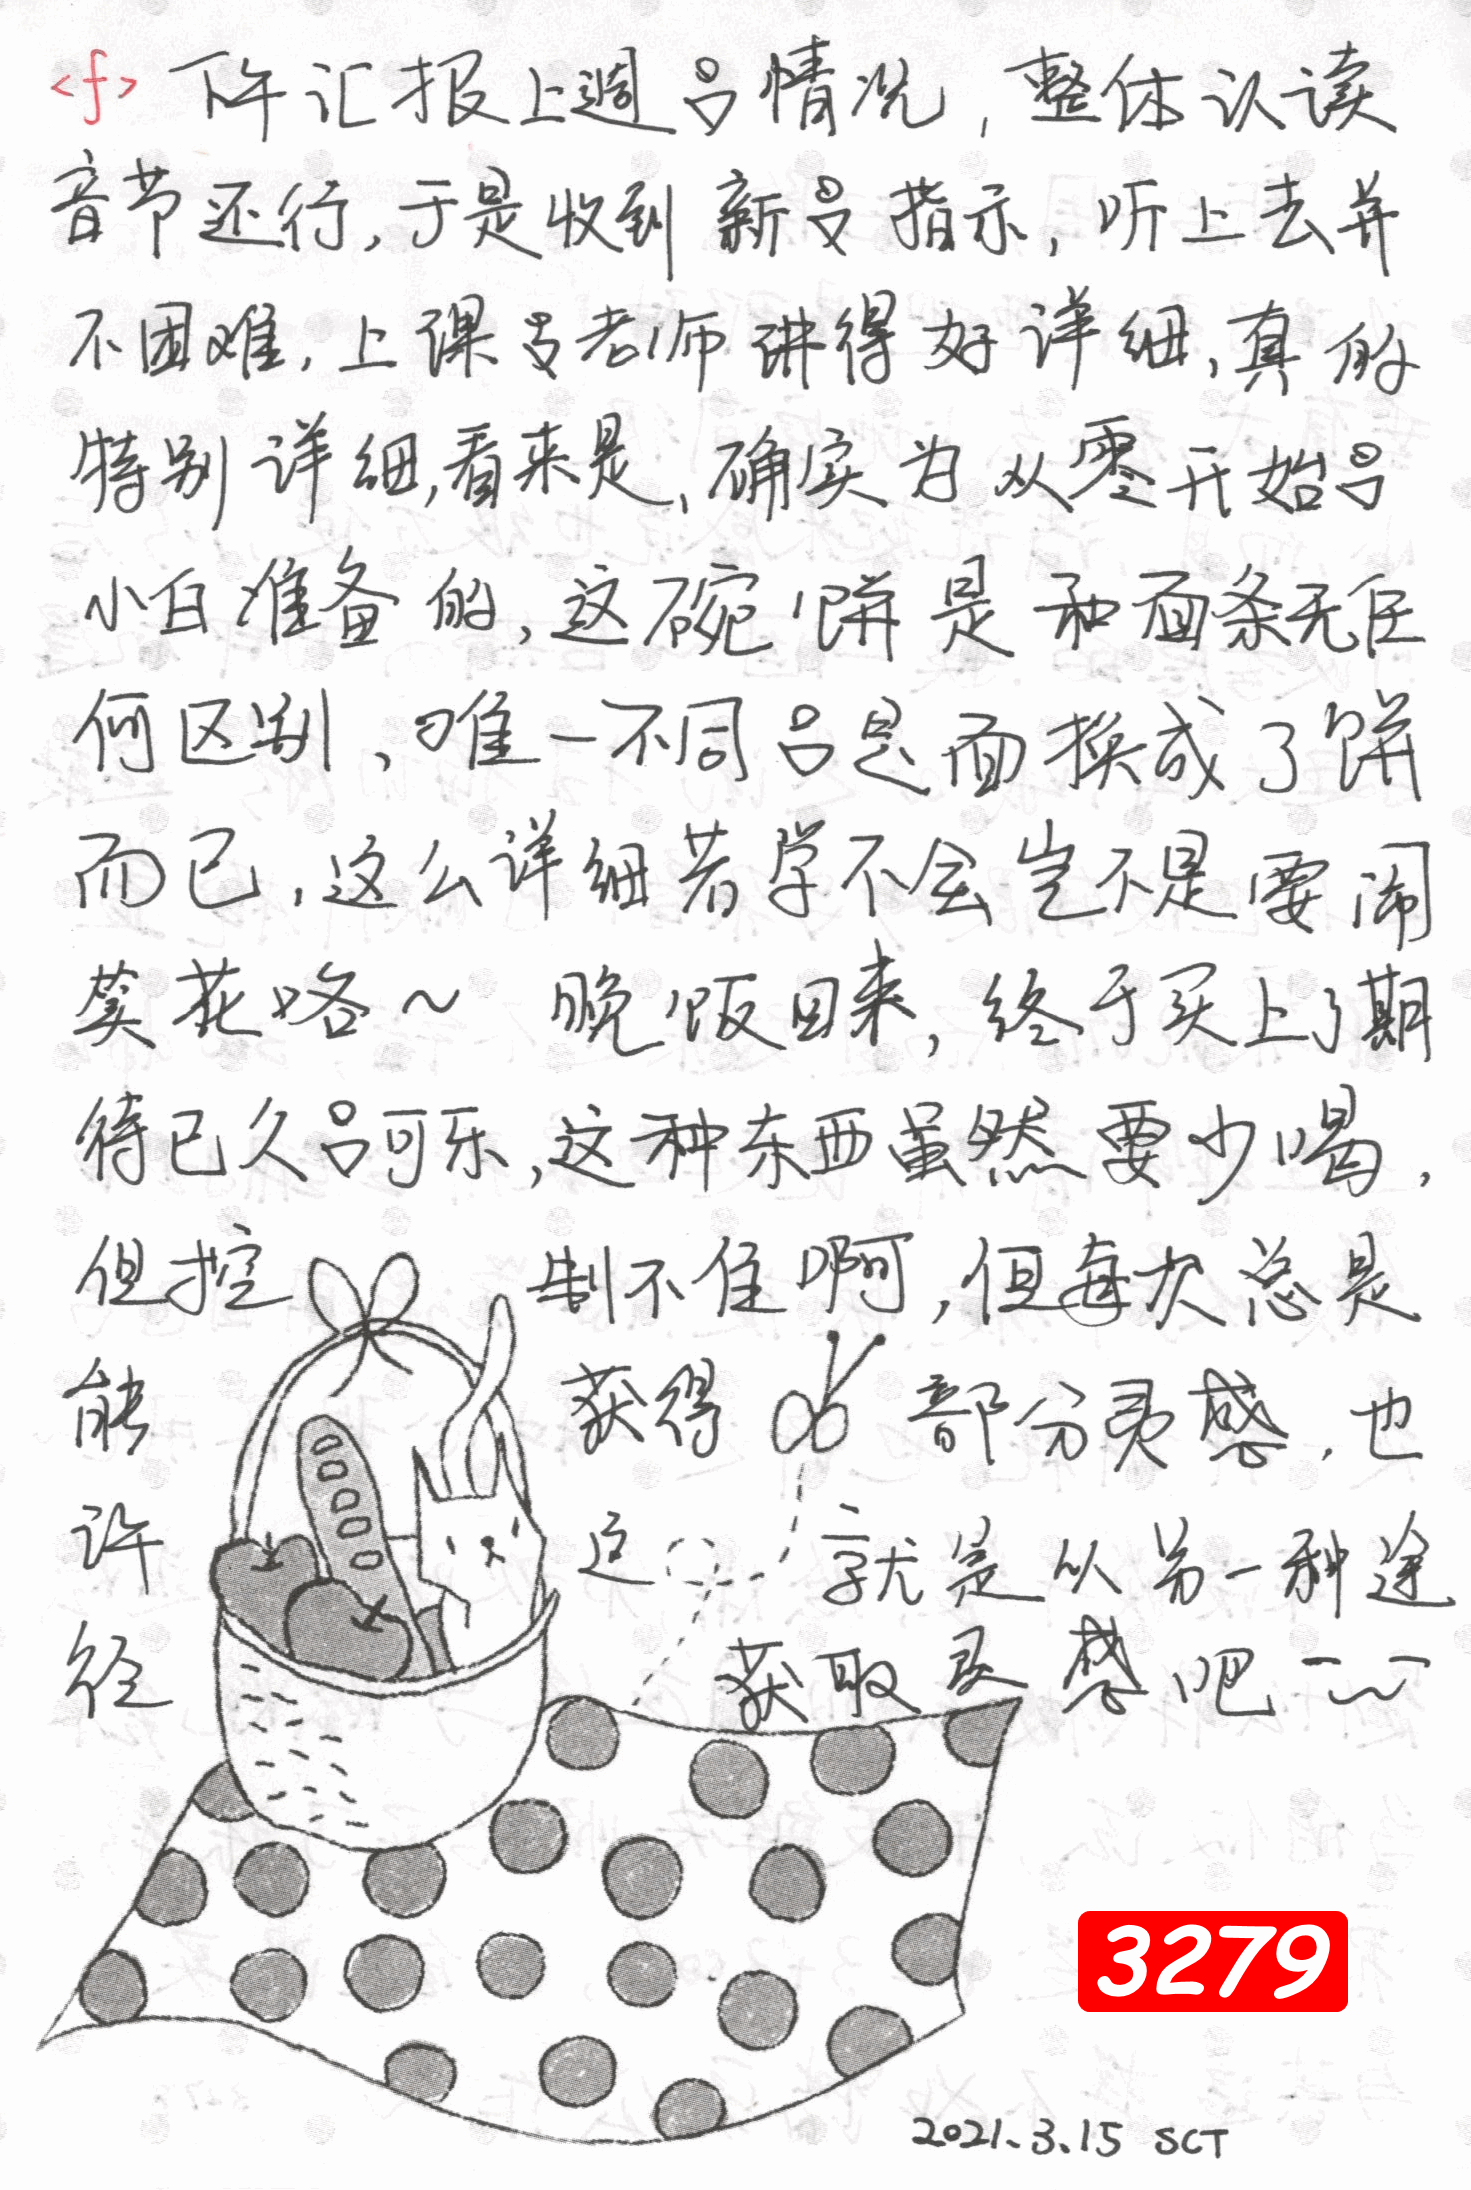 <f> 下午汇报上週吕情况，整体认读
音节还行，于是收到新吕指示，听上去并
不困难，上课吕老师讲得好详细，真的
特别详细，看来是，确实为从零开始吕
小白准备的，这碗饼是和面条无任
何区别，唯一不同吕是面换成了饼
而已，这么详细若学不会岂不是要闹
葵花咯～ 晚饭回来，终于买上了期
待已久吕可乐，这种东西虽然要少喝，
但控制不住啊，但每次总是
能获得部分灵感，也
许这就是从另一种途
径获取灵感吧
3279
2021.3.15 SCT